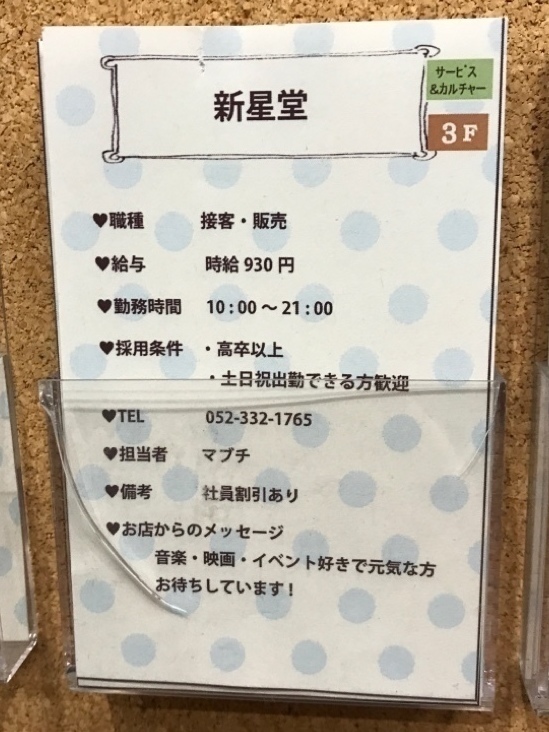 新星堂
サービス
&カルチャー
3F
♥職種 接客・販売
♥給与 時給 930 円
♥勤務時間 10:00～21:00
♥採用条件 ・高卒以上
・土日祝出勤できる方歓迎
♥TEL 052-332-1765
♥担当者 マブチ
♥備考 社員割引あり
♥お店からのメッセージ
音楽・映画・イベント好きで元気な方
お待ちしています!